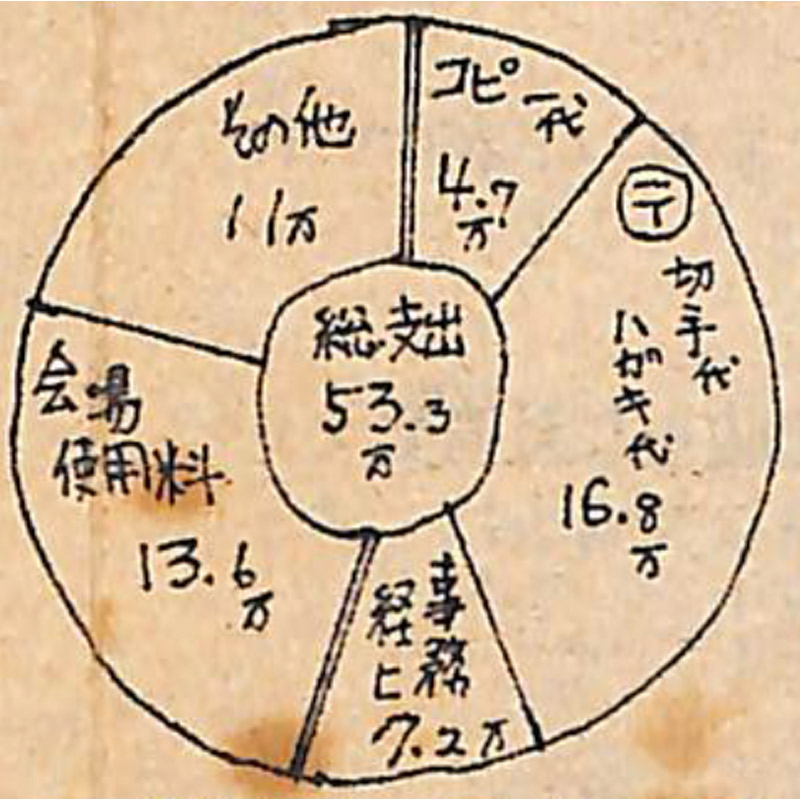 総支出
53.3
万
コピー代
4.7
万
〒
切手代
ハガキ代
16.8
万
事務
経ヒ
7.2万
会場
使用料
13.6
万
その他
11万